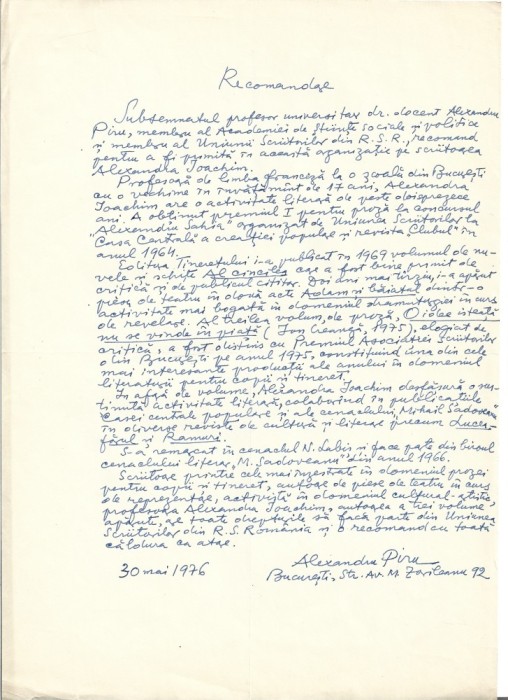 Recomandare
Subsemnatul profesor universitar dr. docent Alexandru
Piru, membru al Academiei de Științe sociale și politice
și membru al Uniunii Scriitorilor din R.S.R., recomand
pentru a fi primită în această organizație pe scriitoarea
Alexandra Ioachim.
Profesoară de limba franceză la o școală din București
cu o vechime în învățămînt de 17 ani, Alexandra
Ioachim are o activitate literară de peste doisprezece
ani. A obținut premiul I pentru proză la concursul
"Alexandru Sahia" organizat de Uniunea Scriitorilor la
Casa Centrală a creației populare și revista "Clubul" în
anul 1964.
Editura Tineretului i-a publicat în 1969 volumul de nu-
vele și schițe Al cincilea care a fost bine primit de
critică și de publicul cititor. Doi ani mai tîrziu, i-a apărut
piesa de teatru în două acte Adam și băiatul dintr-o
activitate mai bogată în domeniul dramaturgiei în curs
de revelare. Al treilea volum, de proză, O idee isteață
nu se vinde în piață (Ion Creangă, 1975), elogiat de
critică, a fost distins cu Premiul Asociației Scriitorilor
din București pe anul 1975, constituind una din cele
mai interesante producții ale anului în domeniul
literaturii pentru copii și tineret.
În afară de volume, Alexandra Ioachim desfășură o sus-
ținută activitate literară, colaborînd în publicațiile
Casei centrale populare și ale cenaclului "Mihail Sadoveanu"
în diverse reviste de cultură și literare precum Lucea-
fărul și Ramuri.
S-a remarcat în cenaclul N. Labiș și face parte din biroul
cenaclului literar "M. Sadoveanu" din anul 1966.
Scriitoare printre cele mai înzestrate în domeniul prozei
pentru copii și tineret, autoare de piese de teatru în curs
de reprezentare, activistă în domeniul cultural-artistic,
profesoara Alexandra Ioachim, autoarea a trei volume
apărute, are toate drepturile să facă parte din Uniunea
Scriitorilor din R.S. România și o recomand cu toată
căldura ca atare.
30 mai 1976
Alexandru Piru
București, Str. Av. M. Zorileanu 92